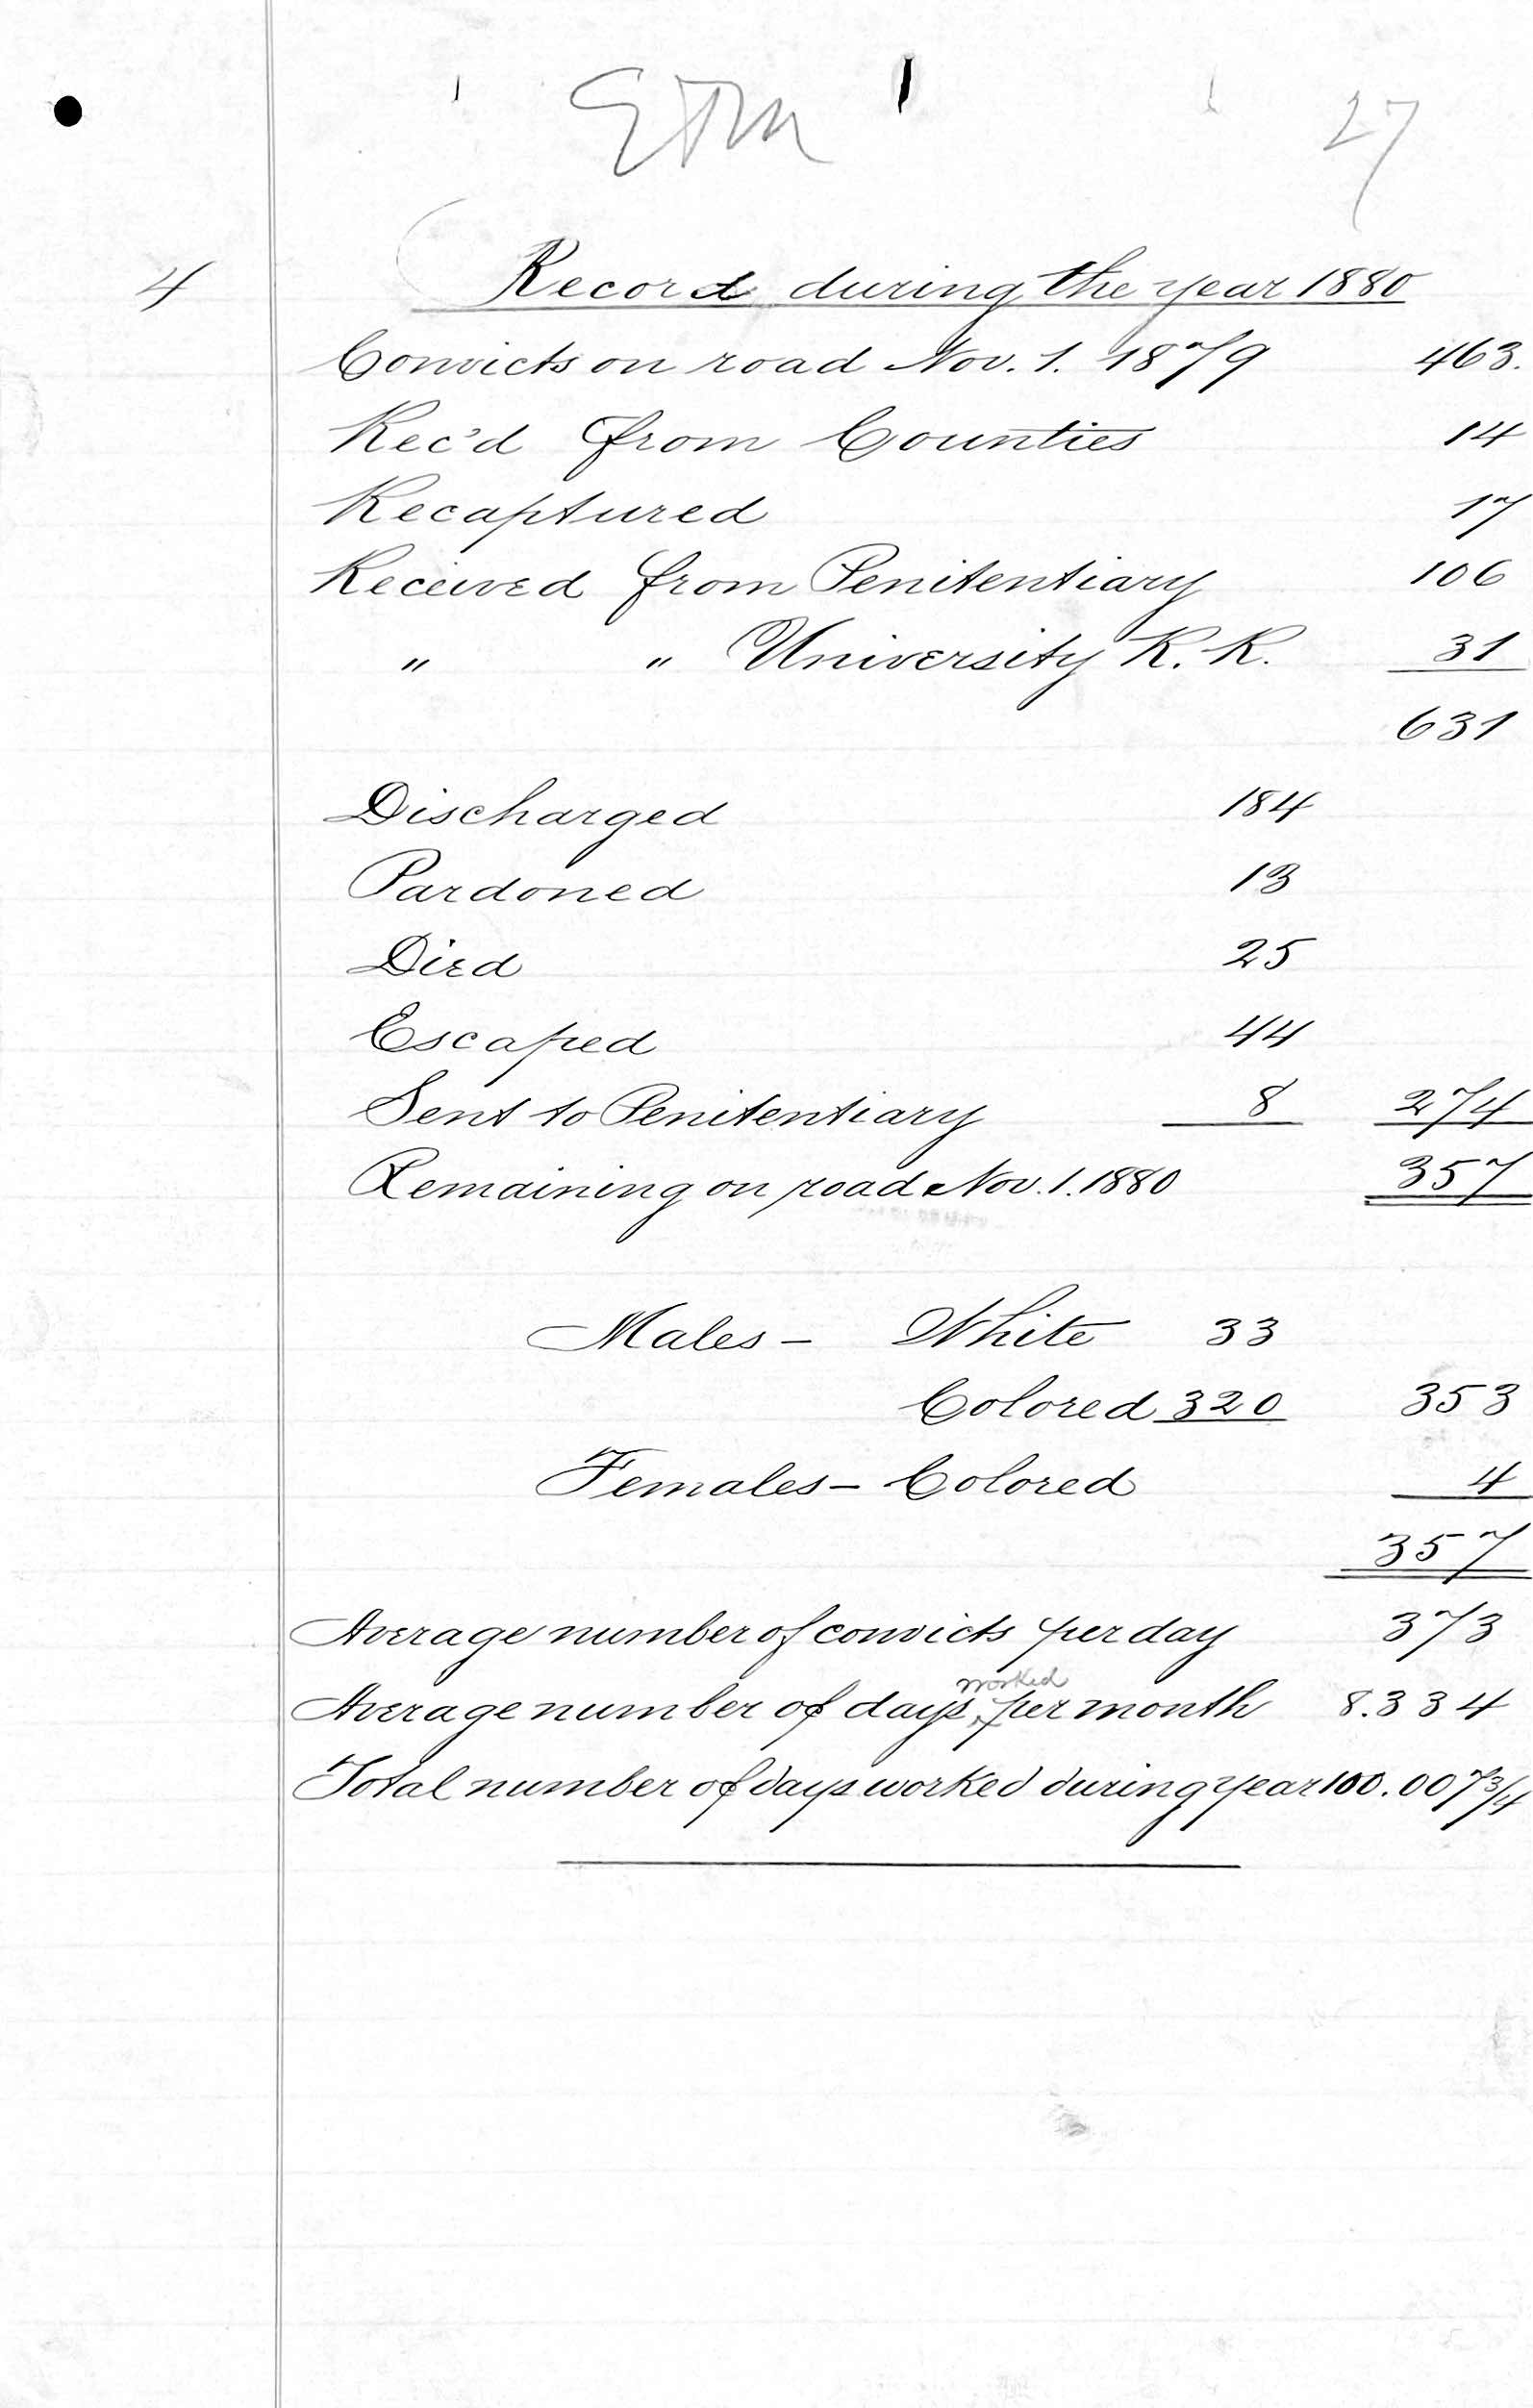 27
4
Record during the year 1880
Convicts on road Nov. 1. 1879 463.
Rec'd from Counties 14
Recaptured 17
Received from Penitentiary 106
" " University R. R. 31
631
Discharged 184
Pardoned 13
Died 25
Escaped 44
Sent to Penitentiary 8 274
Remaining on road Nov. 1. 1880 357
Males - White 33
Colored 320 353
Females - Colored 4
357
Average number of convicts per day 373
worked
Average number of days per month 8.334
Total number of days worked during year 100.007 3/4